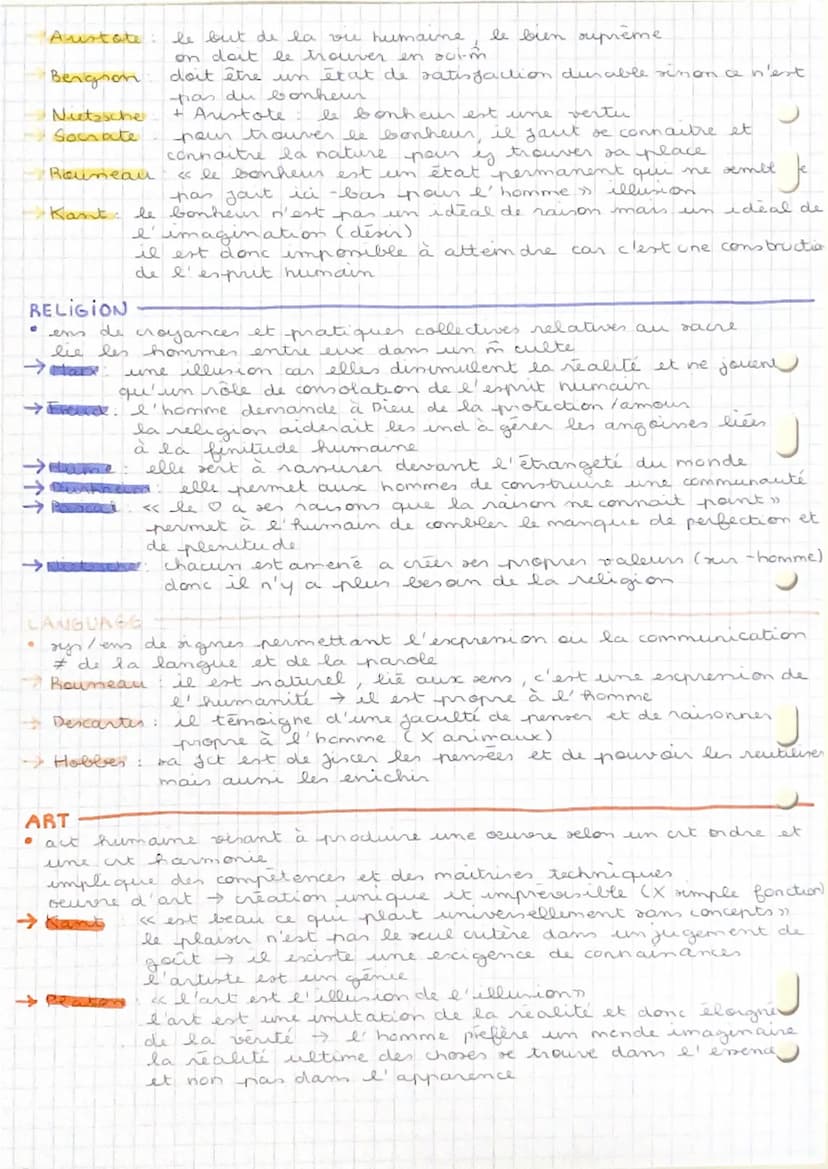 → Aristote : le but de la vie humaine, le bien suprême
on doit le trouver en soi-m̂
Bergson : doit être un état de satisfaction durable sinon ce n'est
pas du bonheur
→ Nietzsche + Aristote : le bonheur est une vertu
→ Socrate : pour trouver le bonheur, il faut se connaitre et
connaitre la nature pour y trouver sa place
→ Rousseau : « le bonheur est un état permanent qui ne semble
pas fait ici-bas pour l'homme » illusion
→ Kant : le bonheur n'est pas un idéal de raison mais un idéal de
l'imagination (désir)
il est donc impossible à atteindre car c'est une constructio
de l'esprit humain
RELIGION
• ens de croyances et pratiques collectives relatives au sacre
lie les hommes entre eux dans un m̂ culte
→ Marx : une illusion car elles dissimulent la réalité et ne jouent
qu'un rôle de consolation de l'esprit humain
→ Freud : l'homme demande à Dieu de la protection/amour
la religion aiderait les ind à gérer les angoisses liées
à la finitude humaine
→ Hume : elle sert à rassurer devant l'étrangeté du monde
→ Durkheim : elle permet aux hommes de construire une communauté
→ Pascal : « le ♡ a ses raisons que la raison ne connait point »
permet à l'humain de combler le manque de perfection et
de plenitude
→ Nietzsche : chacun est amené a créer ses propres valeurs (sur-homme)
donc il n'y a plus besoin de la religion
LANGUAGE
• sys/ens de signes permettant l'expression ou la communication
≠ de la langue et de la parole
→ Rousseau : il est naturel, lié aux sens, c'est une expression de
l'humanité → il est propre à l'homme
→ Descartes : il témoigne d'une faculté de penser et de raisonner
propre à l'homme (X animaux)
→ Hobbes : sa fct est de fixer les pensées et de pouvoir les reutiliser
mais aussi les enichir
ART
• act humaine visant à produire une oeuvre selon un crt ordre et
une crt harmonie
implique des compétences et des maitrises techniques
oeuvre d'art → création unique et imprévisible (X simple fonction)
→ Kant : « est beau ce qui plait universellement sans concepts »
le plaisir n'est pas le seul critère dans un jugement de
goût → il existe une exigence de connaissances
l'artiste est un génie
→ Platon : « l'art est l'illusion de l'illusion »
l'art est une imitation de la réalité et donc éloigné
de la vérité → l'homme préfère un monde imaginaire
la réalité ultime des choses se trouve dans l'essence
et non pas dans l'apparence